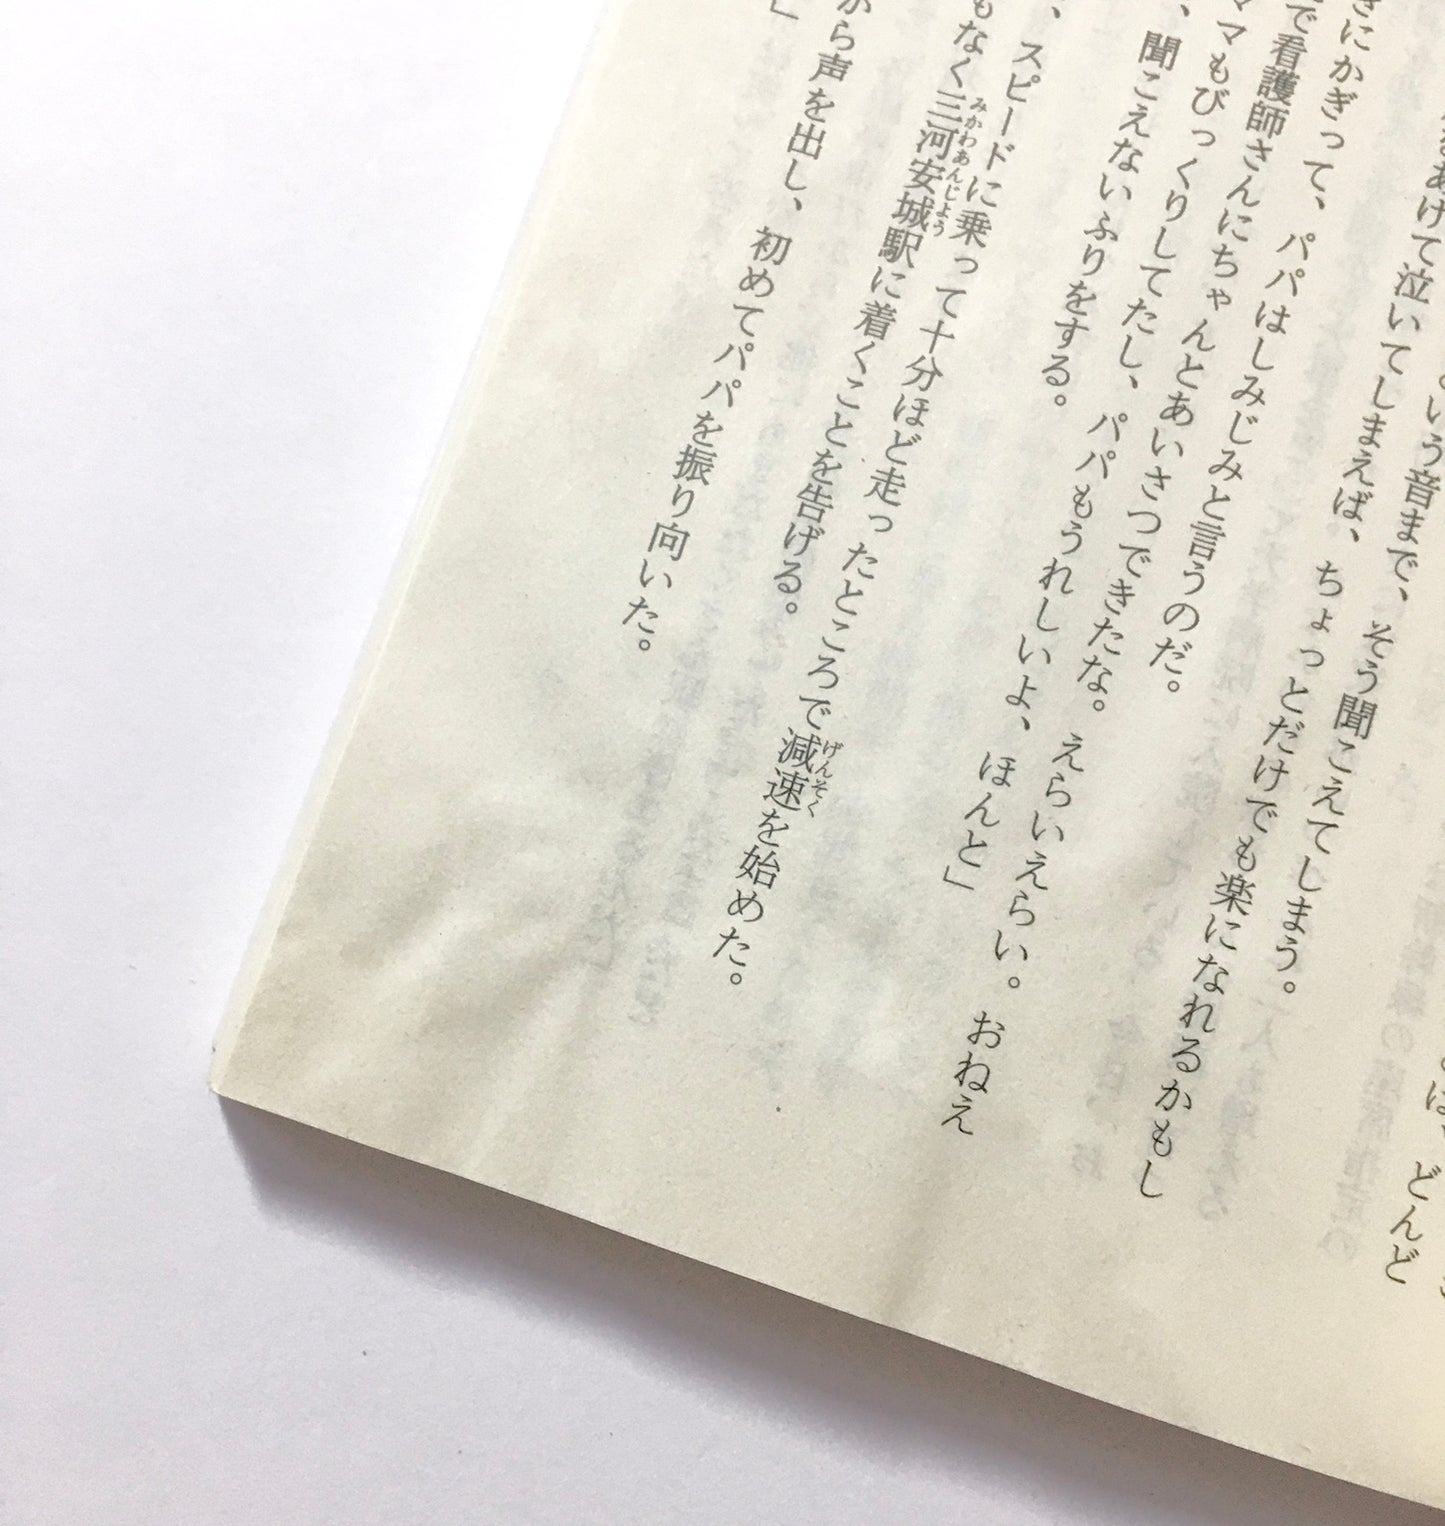 ほ、どんど
という音まで、そう聞こえてしまう。
あけて泣いてしまえば、ちょっとだけでも楽になれるかもし
きにかぎって、パパはしみじみと言うのだ。
で看護師さんにちゃんとあいさつできたな。えらいえらい。おねえ
ママもびっくりしてたし、パパもうれしいよ、ほんと」
、聞こえないふりをする。
、スピードに乗って十分ほど走ったところで減速を始めた。
げんそく
もなく三河安城駅に着くことを告げる。
みかわあんじよう
」
から声を出し、初めてパパを振り向いた。